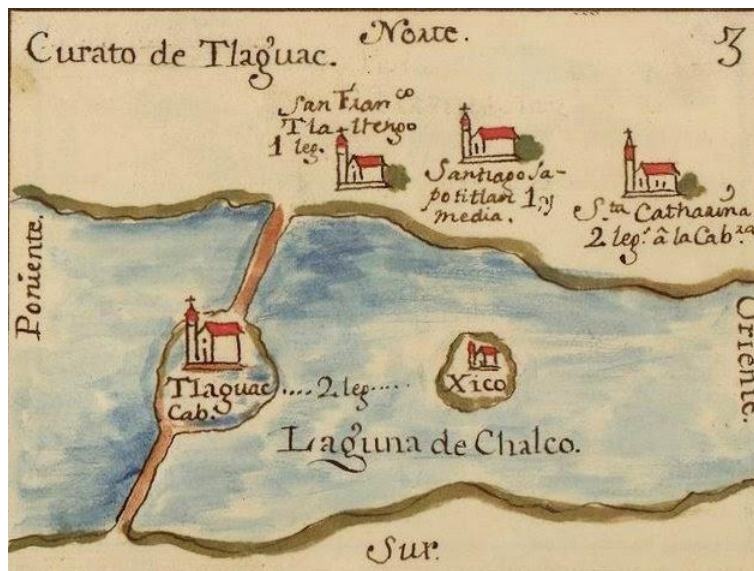 Norte.
Curato de Tlaguac.
3
San Franco
Tlaltengo
1 leg.
Santiago Sa-
potitlan 1, y
media.
S.ta Catharina
2 leg.s â la Cab.ra
Poniente.
Oriente.
Tlaguac
Cab.
....2 leg.....
Xico
Laguna de Chalco.
Sur.